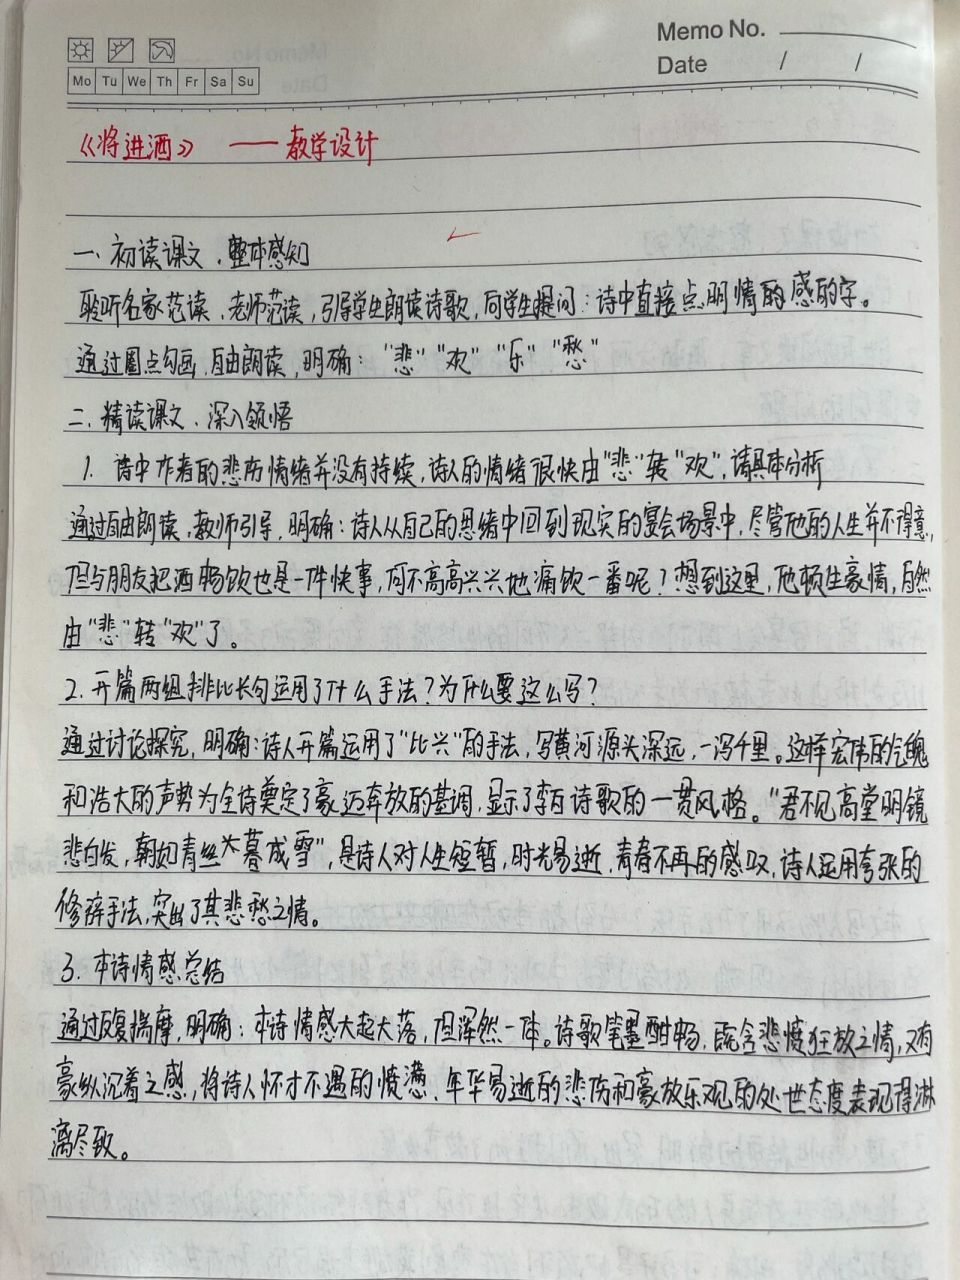 Memo No.
Mo Tu We Th Fr Sa Su
Date / /
《将进酒》 ——教学设计
一、初读课文、整体感知
聆听名家范读、老师范读,引导学生朗读诗歌,向学生提问:诗中直接点明情的感的字。
通过圈点勾画,自由朗读,明确:"悲""欢""乐""愁"
二、精读课文、深入领悟
1. 诗中作者的悲伤情绪并没有持续,诗人的情绪很快由"悲"转"欢",请具体分析
通过自由朗读,教师引导,明确:诗人从自己的思绪中回到现实的宴会场景中,尽管他的人生并不得意,
但与朋友把酒畅饮也是一件快事,何不高高兴兴地痛饮一番呢?想到这里,他顿生豪情,自然
由"悲"转"欢"了。
2. 开篇两组排比长句运用了什么手法?为什么要这么写?
通过讨论探究,明确:诗人开篇运用了"比兴"的手法,写黄河源头深远,一泻千里。这样宏伟的气魄
和浩大的声势为全诗奠定了豪迈奔放的基调,显示了李白诗歌的一贯风格。"君不见高堂明镜
悲白发,朝如青丝暮成雪",是诗人对人生短暂,时光易逝,青春不再的感叹,诗人运用夸张的
修辞手法,突出了其悲愁之情。
3. 本诗情感总结
通过反复揣摩,明确:本诗情感大起大落,但浑然一体。诗歌笔墨酣畅,既含悲愤狂放之情,又有
豪纵沉着之感,将诗人怀才不遇的愤懑、年华易逝的悲伤和豪放乐观的处世态度表现得淋
漓尽致。